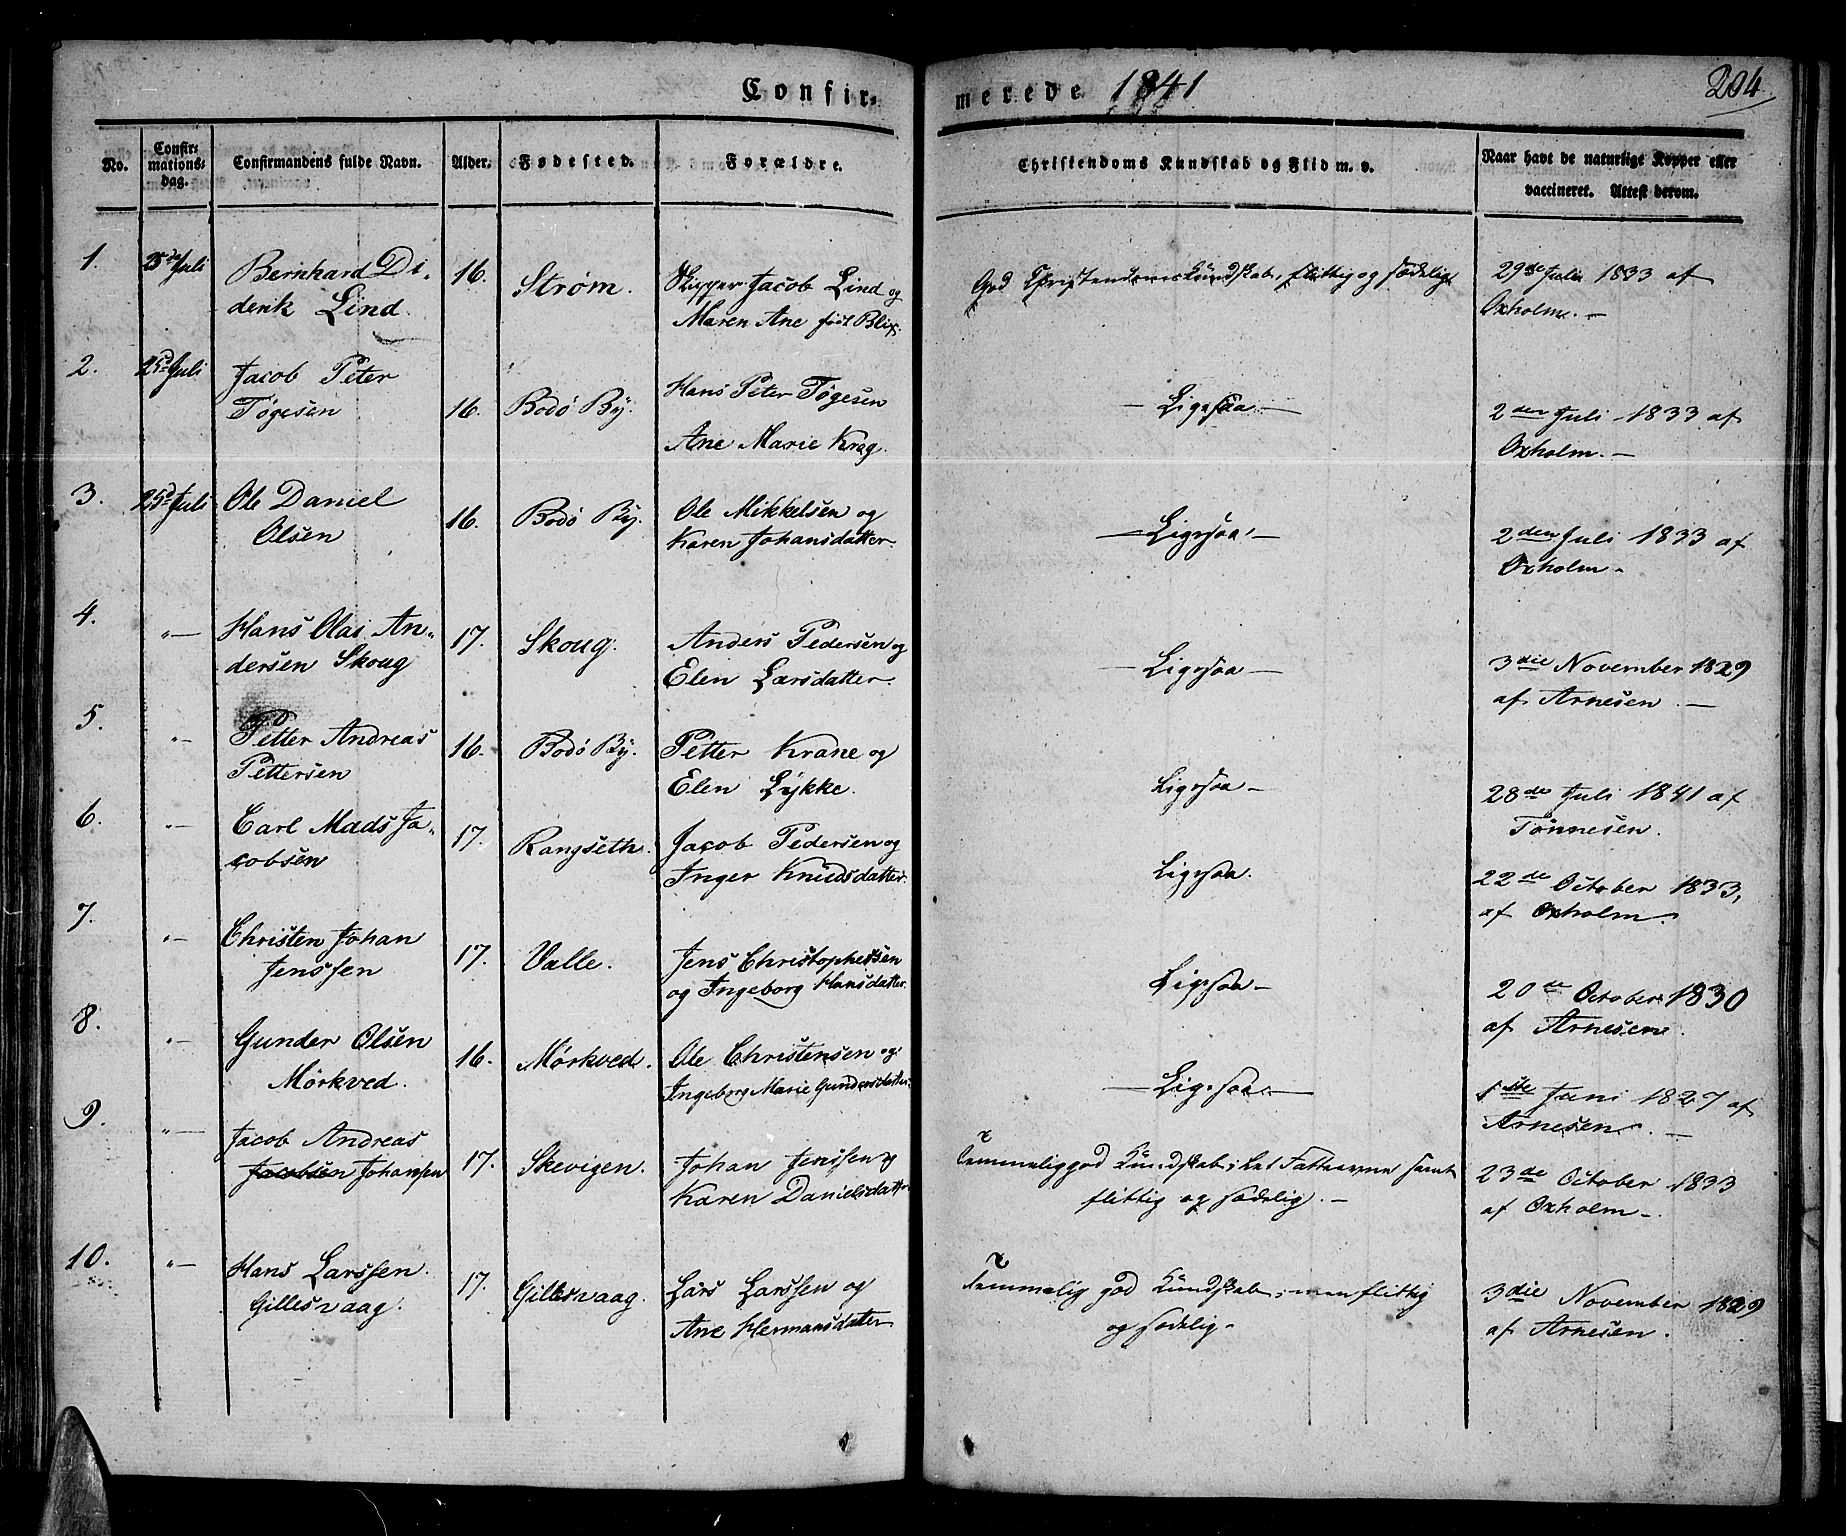 Confir- merede 1841
204
No.
Confir-
mations-
dag.
Confirmandens fulde Navn.
Alder.
Fødested.
Forældre.
Christendoms Kundskab og Flid m. v.
Naar havt de naturlige Kopper eller
vaccineret. Attest derom.
1. 25de Juli Bernhard Di- 16. Strøm. Skipper Jacob Lind og God Christendomskundskab, flittig og sædelig 29de Juli 1833 af
derik Lind. Maren Ane født Blix. Oxholm. —
2. 25d Juli Jacob Peter Hans Peter Tøgesen
Tøgesen 16. Bodö By. — Ligesaa. — 2den Juli 1833 af
Ane Marie Krag. Oxholm. —
3. 25d Juli Ole Daniel 16. Bodö By. Ole Mikkelsen og — Ligesaa — 2den Juli 1833 af
Olsen Karen Johansdatter. Oxholm —
4. "— Hans Olai An- 17. Skoug. Anders Pedersen og — Ligesaa — 3die November 1829
dersen Skoug Elen Larsdatter. af Arnesen —
5. "— Petter Andreas 16. Bodö By. Petter Krane og Ligesaa — 28de Juli 1841 af
Pettersen Elen Lykke. Tönnesen.
6. "— Carl Mads Ja- 17. Rangseth. Jacob Pedersen og Ligesaa. 22de October 1833,
cobsen Inger Knudsdatter. af Oxholm.
7. "— Christen Johan 17. Valle. Jens Christophersen Ligesaa — 20de October 1830
Jenssen og Ingeborg Hansdatter. af Arnesen.
8. "— Gunder Olsen 16. Mørkved. Ole Christensen og — Ligesaa — 1ste Juni 1827 af
Mørkved. Ingeborg Marie Gundersdatter. Arnesen. —
9. "— Jacob Andreas 17. Skevigen. Johan Jenssen og Temmelig god Kundskab, samt 23de October 1833
Jacobsen Johansen Karen Danielsdatter flittig og sædelig. — af Oxholm —
10. "— Hans Larssen. 17. Gillesvaag. Lars Larssen og Temmelig god Kundskab, men flittig 3die November 1829
Gillesvaag. Ane Hermansdatter og sædelig — af Arnesen.